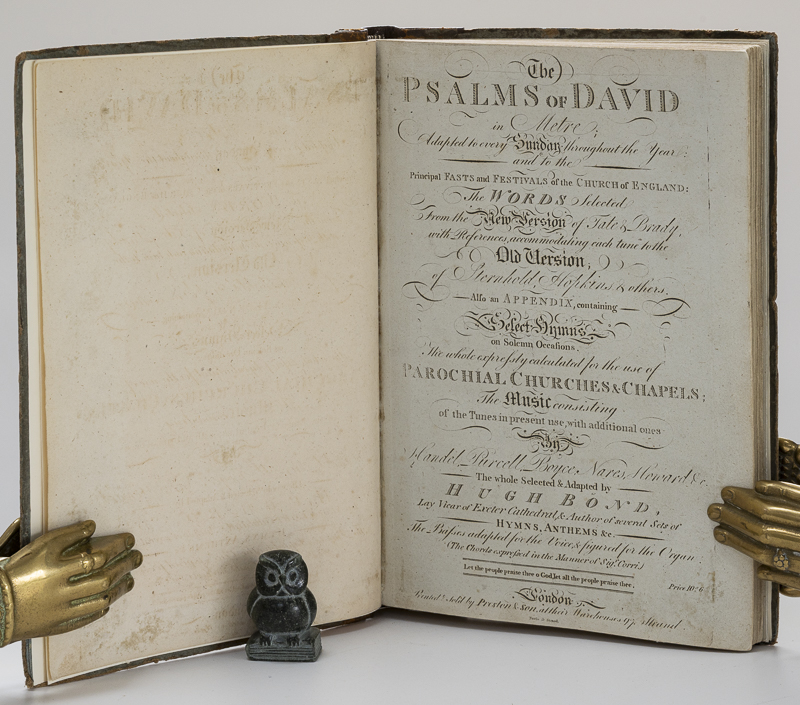 The
PSALMS OF DAVID
in Metre;
Adapted to every Sunday throughout the Year:
and to the
Principal FASTS and FESTIVALS of the CHURCH of ENGLAND:
The WORDS Selected
From the New Version of Tate & Brady,
with References, accommodating each tune to the
Old Version,
of Sternhold, Hopkins, & others,
Also an APPENDIX, containing
Select Hymns
on Solemn Occasions.
The whole expressly calculated for the use of
PAROCHIAL CHURCHES & CHAPELS;
The Music consisting
of the Tunes in present use, with additional ones
By
Handel, Purcell, Boyce, Nares, Howard, &c.
The whole Selected & Adapted by
HUGH BOND,
Lay Vicar of Exeter Cathedral, & Author of several Sets of
HYMNS, ANTHEMS &c.
The Basses adapted for the Voice, & figured for the Organ
(The Chords expressed in the Manner of Sigr. Corri.)
Let the people praise thee o God, let all the people praise thee.
Price 10s. 6
London
Printed & Sold by Preston & Son, at their Warehouses 97, Strand